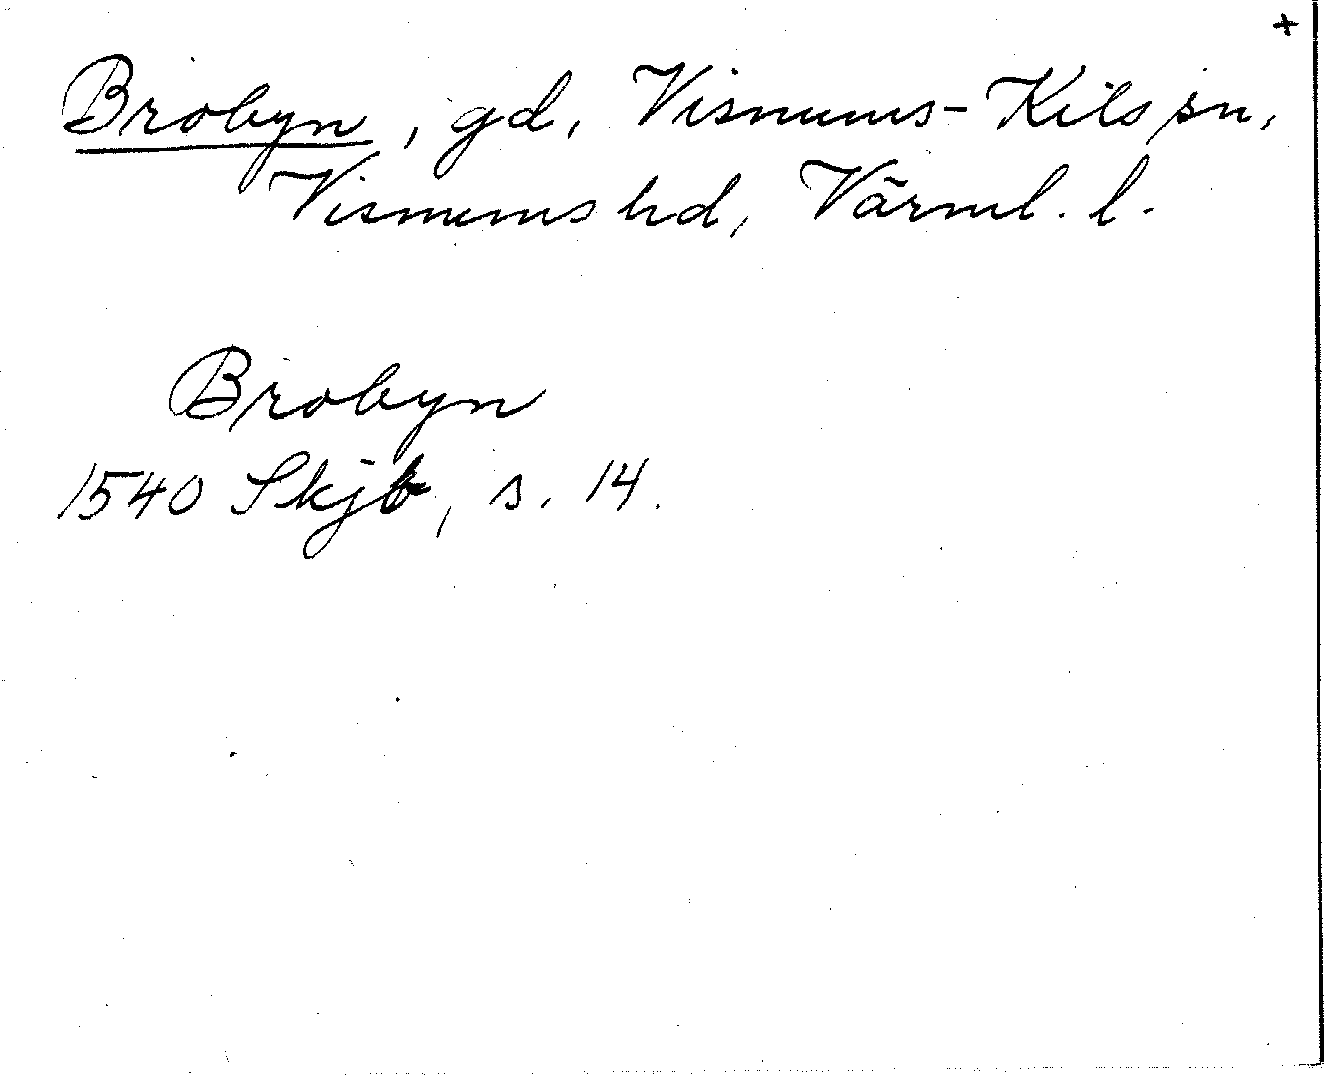 +
Brobyn, gd, Visnums-Kils sn,
Visnums hd, Värml. l.
Brobyn
1540 Skjb, s. 14.